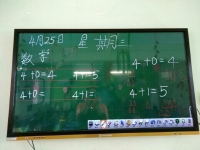 4月25日 星期二
数学
4+0=4 4+1=5 4+0=4
4+0= 4+1= 4+1=5